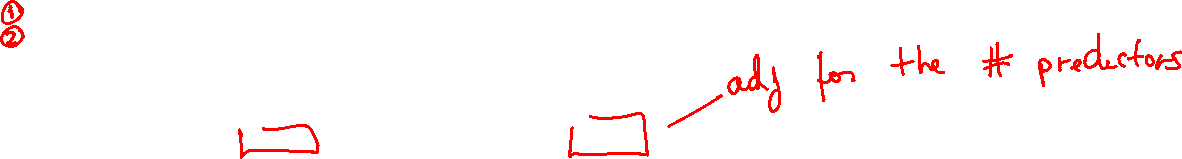 ①
②
adj for the # predictors